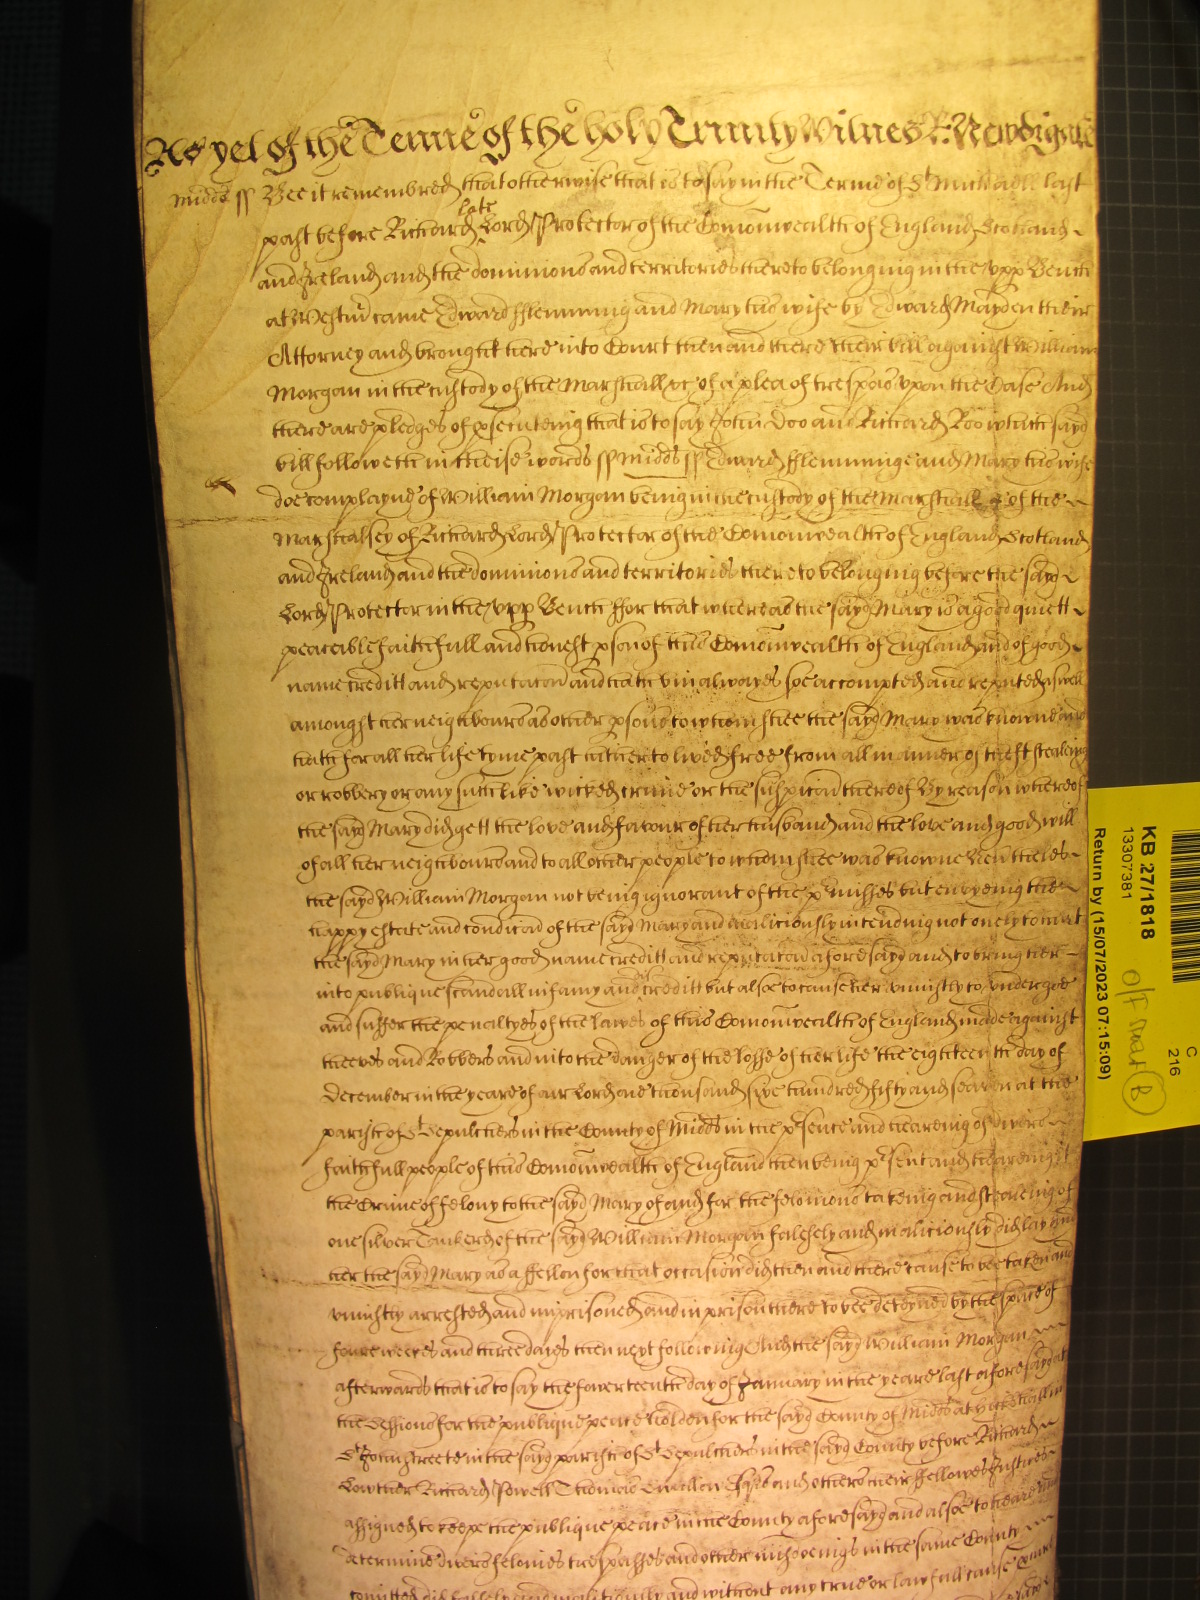 As yet of the Terme of the holy Trinity Witnes R: Newdigate
Midds ss Bee it remembred that otherwise that is to say in the Terme of St Michaell last
past before Richard late Lord Protector of the Comonwealth of England Scotland
and Ireland and the dominions and territories thereto belonging in the Upp Bench
at Westm came Edward fflemming and Mary his wife by Edward Mayden their
Attorney and brought here into Court then and there their bill against William
Morgan in the custody of the Marshall &c of a plea of trespas upon the Case And
there are pledges of psecuteing that is to say John Doo and Richard Roo which sayd
bill followeth in theise words ss Midds ss Edward fflemminge and Mary his wife
doe complayne of William Morgan being in the custody of the Marshall of the
Marshalsey of Richard Lord Protector of the Comonwealth of England Scotland
and Ireland and the dominions and territories thereto belonging before the sayd
Lord Protector in the Upp Bench ffor that whereas the sayd Mary is a good quiett
peaceible faithfull and honest pson of this Comonwealth of England and of good
name creditt and reputacon and hath bin alwayes soe accompted and reputed aswell
amongst her neighbours as other psons to whom shee the sayd Mary was knowne and
hath for all her life tyme past hitherto lived free from all manner of theft stealeing
or robbery or any such like wicked crime or the suspicon thereof By reason whereof
the sayd Mary did gett the love and favour of her husband and the love and good will
of all her neighbours and to all other people to whom shee was knowne
the sayd William Morgan not being ignorant of the pmisses but envyeing the
happy estate and condicon of the sayd Mary and maliciously intending not onely to hurt
the sayd Mary in her good name creditt and reputacon aforesayd and to bring her
into publique scandall infamy and discreditt but alsoe to cause her uniustly to undergoe
and suffer the penaltyes of the lawes of this Comonwealth of England made against
theeves and Robbers and into the danger of the losse of her life the eighteenth day of
December in the yeare of our Lord one thousand sixe hundred fifty and seaven at the
parish of St Sepulchers in the County of Midds in the psence and heareing of divers
faithfull people of this Comonwealth of England then being psent and heareing
the Crime of felony to the sayd Mary of and for the felonious takeing and stealeing of
one silver Tankerd of the sayd William Morgan falsely and maliciously did lay and
her the sayd Mary as a ffellon for that occasion did then and there cause to bee taken and
uniustly arrested and imprisoned and in prison there to bee deteyned by the space of
foure weekes and three dayes then next following And the sayd William Morgan
afterwards that is to say the fowerteenth day of January in the yeare last aforesayd at
the Sessions for the publique peace holden for the sayd County of Midds at Hicks hall in
St John streete in the sayd parish of St Sepulchers in the sayd County before Richard
Lowther Richard Powell Thomas Swallow Esqs and others their ffellowes Justices
assigned to keepe the publique peace in the County aforesayd and alsoe to heare and
determine divers felonies trespasses and other misdoeings in the same County
comitted did falsely and malitiously and without any true or lawfull cause
C
216
KB 27/1818
13307381
Return by (15/07/2023 07:15:09)
off mat B